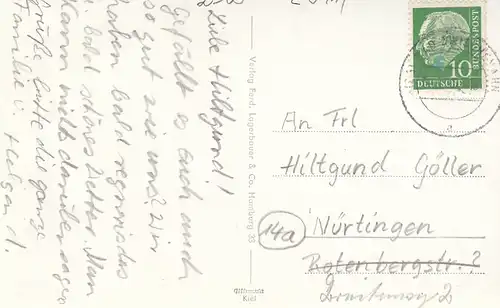 Liebe Hiltgund!
Gefällt es euch auch
so gut wie uns? Wir
haben bald regnerisches
bald schönes Wetter. Man
kann nichts darüber sagen
Grüße bitte die ganze
Familie
Verlag Ferd. Lagerbauer & Co. Hamburg 33
DEUTSCHE
BUNDESPOST
10
An Frl
Hiltgund Göller
14a
Nürtingen
Rotenbergstr. ?
2
Kiel